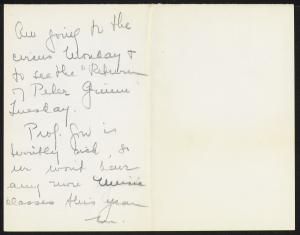 Am going to the
circus Monday &
to see the "Return
of Peter Grimm"
Tuesday.
Prof. is
terribly sick, so
we won't have
any more music
classes this year